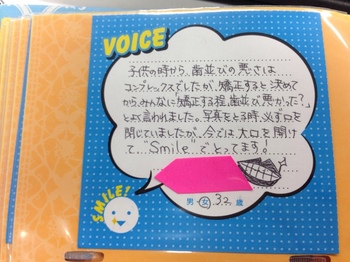 VOICE
子供の時から、歯並びの悪さは
コンプレックスでしたが、矯正すると決めて
から、みんなに「矯正する程、歯並び悪かった?」
とよく言われました。写真をとる時、必ず口を
閉じていましたが、今では大口を開けて
"Smile"でとってます!
男・女 32歳
SMILE!